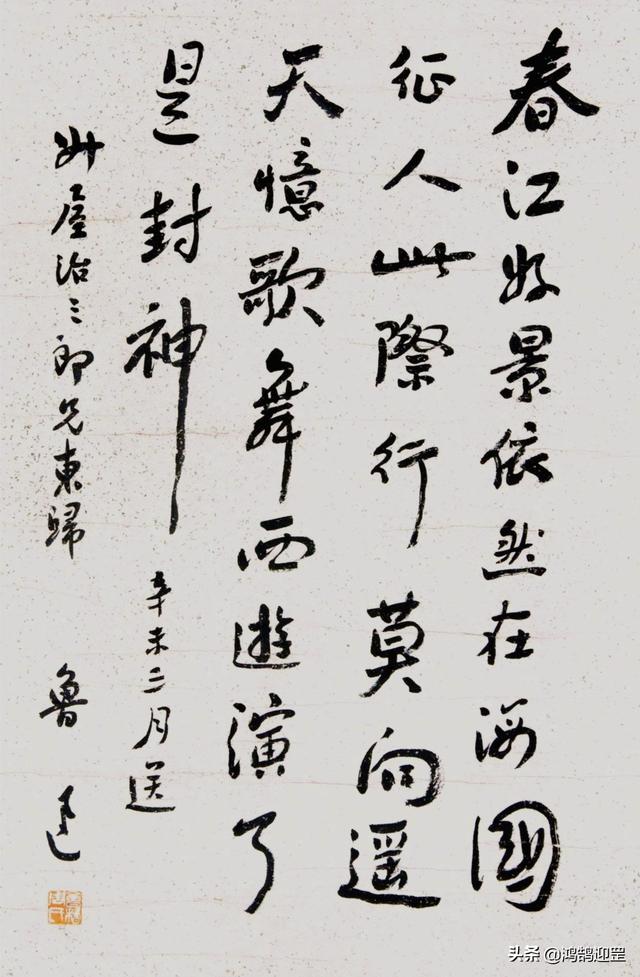 春江好景依然在海國
征人此際行莫向遥
天憶歌舞西遊演了
是封神 辛未三月送
升屋治三郎兄東歸 魯迅
头条 @鸿鹄迎罡